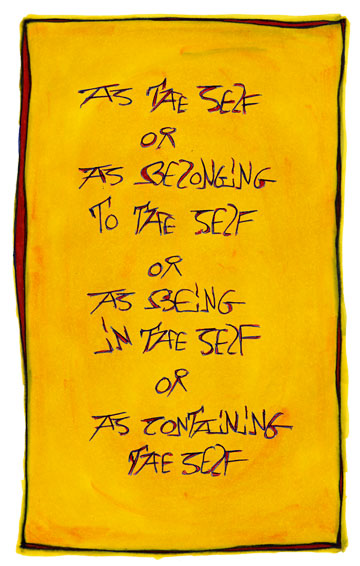 AS THE SELF
OR
AS BELONGING
TO THE SELF
OR
AS BEING
IN THE SELF
OR
AS CONTAINING
THE SELF